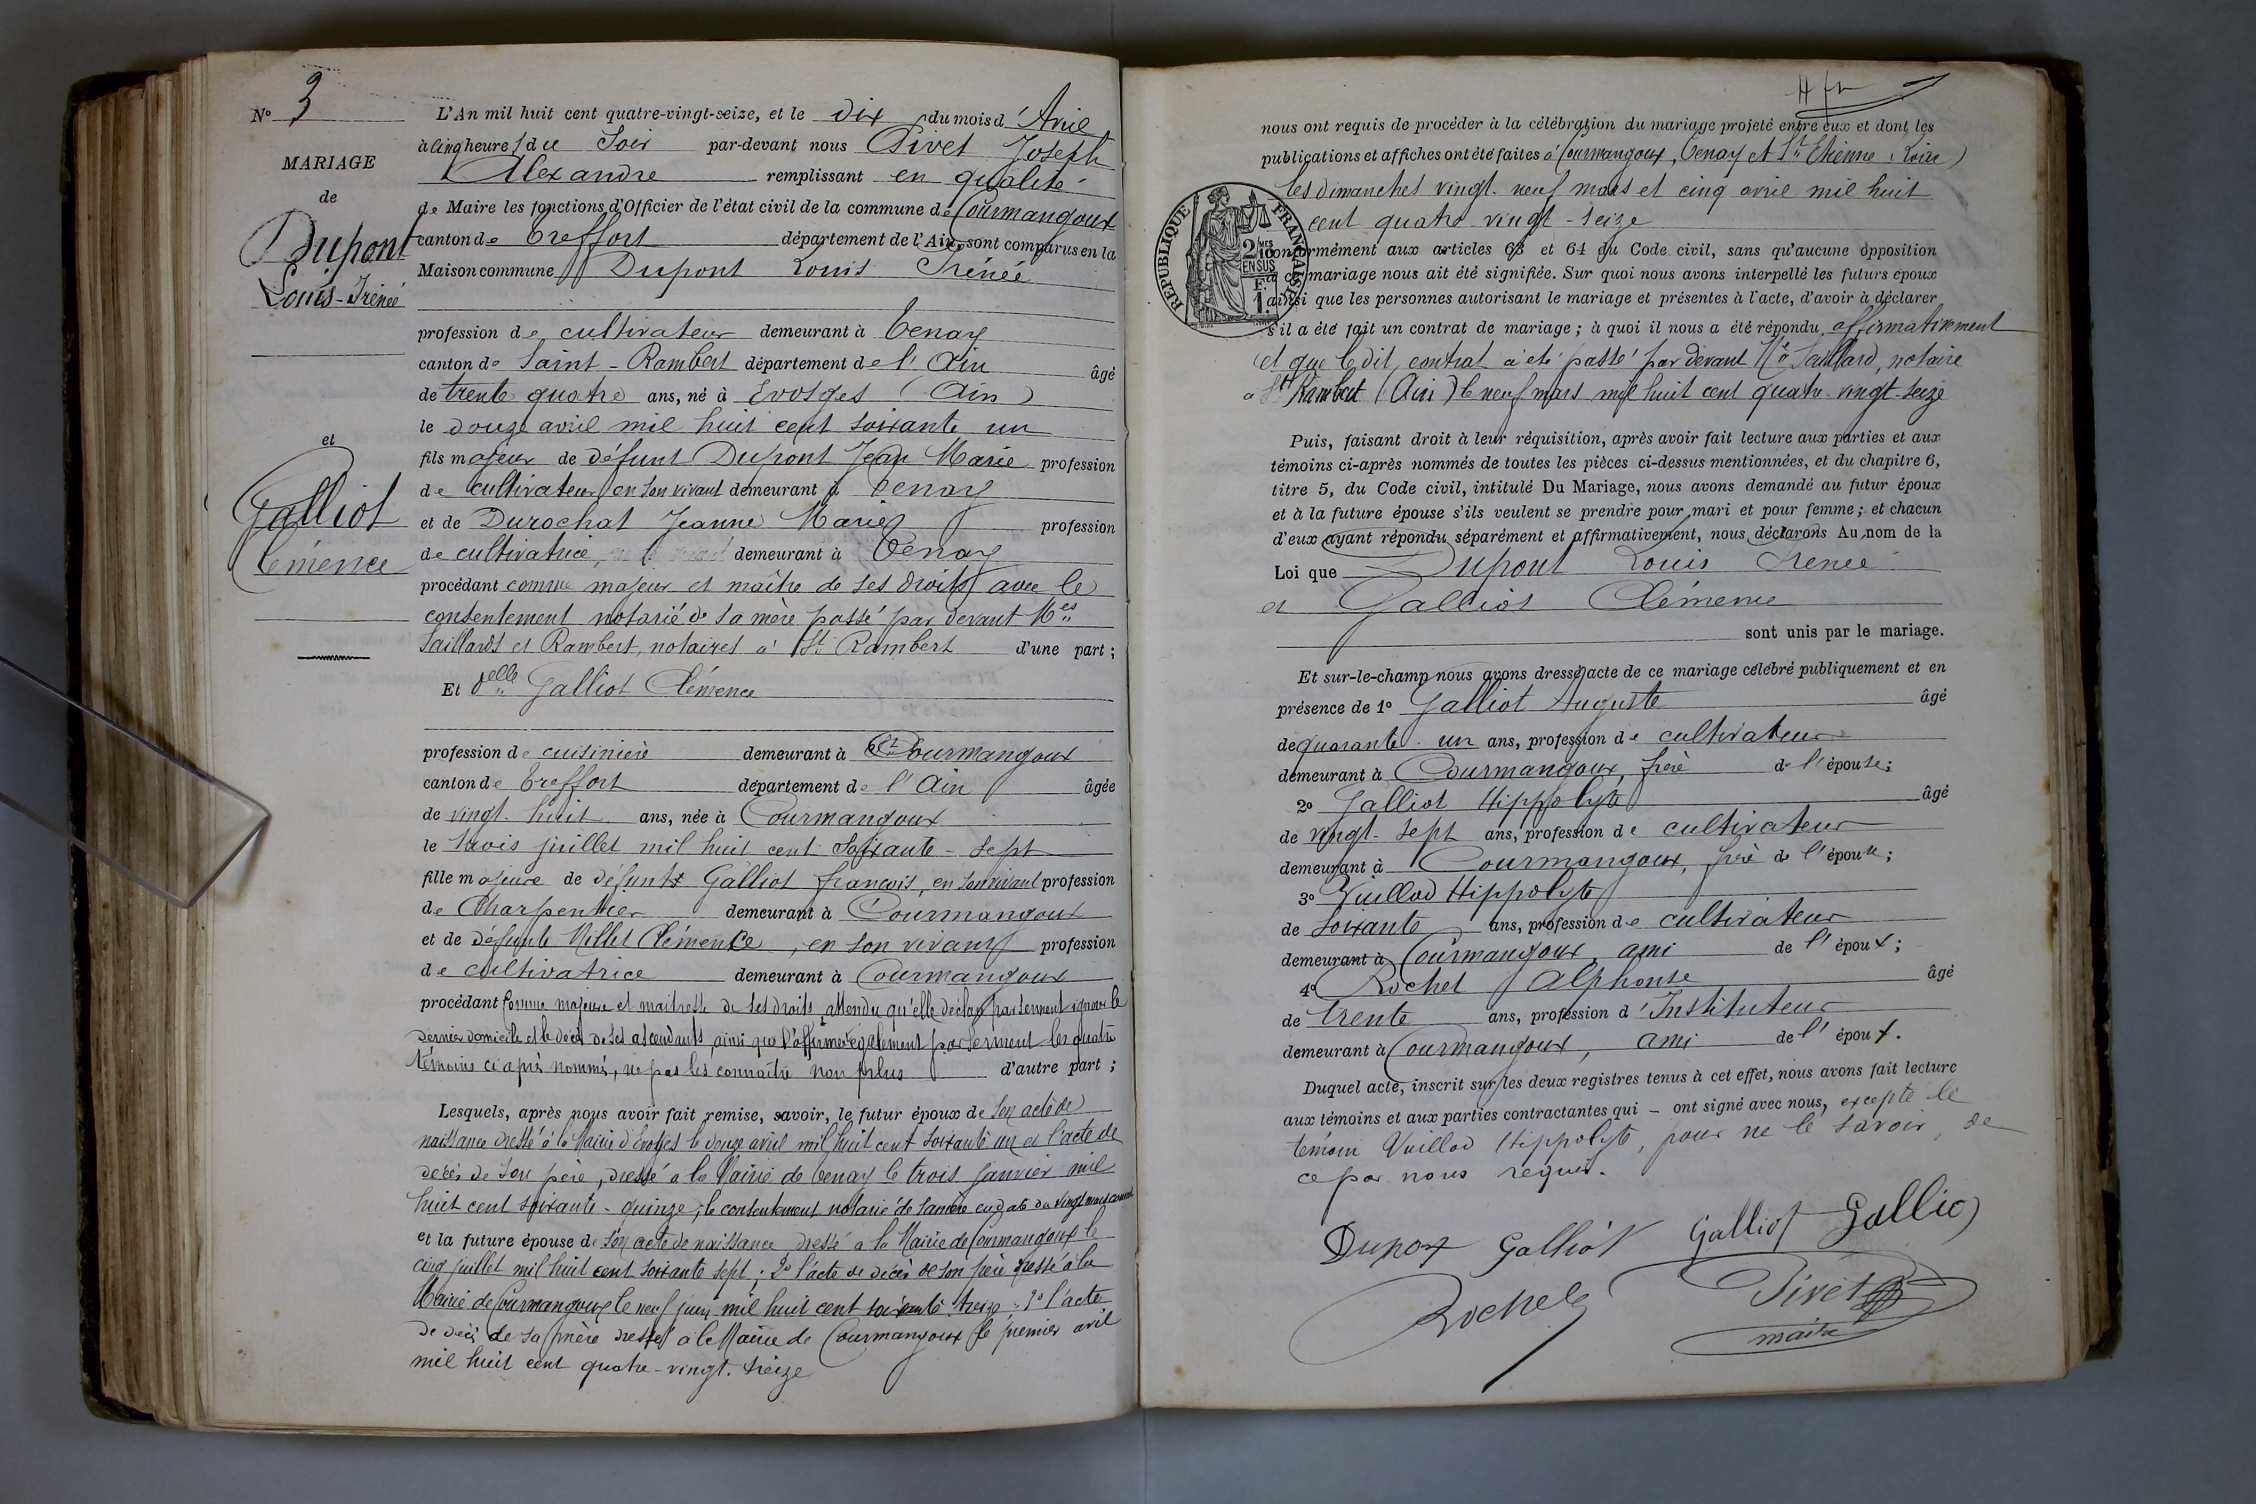 N° 3
MARIAGE
de
Dupont
Louis-Irénée
et
Galliot
Clémence
L'An mil huit cent quatre-vingt-seize, et le dix du mois d'Avril
à cinq heures du Soir par-devant nous Pivet Joseph
Alexandre remplissant en qualité
de Maire les fonctions d'Officier de l'état civil de la commune de Courmangoux
canton de Treffort département de l'Ain, sont comparus en la
Maison commune Dupont Louis Irénée
profession de cultivateur demeurant à Tenay
canton de Saint-Rambert département de l'Ain âgé
de trente quatre ans, né à Evosges (Ain)
le douze avril mil huit cent soixante un
fils majeur de défunt Dupont Jean Marie profession
de cultivateur en son vivant demeurant à Tenay
et de Durochat Jeanne Marie profession
de cultivatrice, demeurant à Tenay
procédant comme majeur et maître de ses droits avec le
consentement notarié de sa mère passé par devant Mes
Saillard et Rambert, notaires à St Rambert d'une part ;
Et delle Galliot Clémence
profession de cuisinière demeurant à Courmangoux
canton de Treffort département de l'Ain âgée
de vingt-huit ans, née à Courmangoux
le trois juillet mil huit cent soixante-sept
fille majeure de défunt Galliot françois, en son vivant profession
de Charpentier demeurant à Courmangoux
et de défunte Millet Clémence, en son vivant profession
de cultivatrice demeurant à Courmangoux
procédant comme majeure et maitresse de ses droits, attendu qu'elle déclare par serment ignorer le
dernier domicile et le décès de ses ascendants, ainsi que l'affirme également par serment les quatre
témoins ci après nommés, ne pas les connaître non plus d'autre part ;
Lesquels, après nous avoir fait remise, savoir, le futur époux de son acte de
naissance dressé à la Mairie d'Evosges le douze avril mil huit cent soixante un et l'acte de
décès de son père, dressé à la Mairie de Tenay le trois janvier mil
huit cent soixante-quinze ; le consentement notarié de sa mère en date du vingt mars courant
et la future épouse de son acte de naissance dressé à la Mairie de Courmangoux le
cinq juillet mil huit cent soixante sept ; 2° l'acte de décès de son père dressé à la
Mairie de Courmangoux le neuf juin mil huit cent soixante treize ; 3° l'acte
de décès de sa mère dressé à la Mairie de Courmangoux le premier avril
mil huit cent quatre-vingt-treize
nous ont requis de procéder à la célébration du mariage projeté entre eux et dont les
publications et affiches ont été faites à Courmangoux, Tenay et St Etienne (Loire)
les dimanches vingt-neuf mars et cinq avril mil huit
cent quatre vingt-seize
RÉPUBLIQUE FRANÇAISE
2/10MES
EN SUS
F.
1.
conformément aux articles 63 et 64 du Code civil, sans qu'aucune opposition
à ce mariage nous ait été signifiée. Sur quoi nous avons interpellé les futurs époux
ainsi que les personnes autorisant le mariage et présentes à l'acte, d'avoir à déclarer
s'il a été fait un contrat de mariage ; à quoi il nous a été répondu affirmativement
et que le dit contrat a été passé par devant Me Saillard, notaire
à St Rambert (Ain) le neuf mars mil huit cent quatre-vingt-seize
Puis, faisant droit à leur réquisition, après avoir fait lecture aux parties et aux
témoins ci-après nommés de toutes les pièces ci-dessus mentionnées, et du chapitre 6,
titre 5, du Code civil, intitulé Du Mariage, nous avons demandé au futur époux
et à la future épouse s'ils veulent se prendre pour mari et pour femme ; et chacun
d'eux ayant répondu séparément et affirmativement, nous déclarons Au nom de la
Loi que Dupont Louis Irénée
et Galliot Clémence
sont unis par le mariage.
Et sur-le-champ nous avons dressé acte de ce mariage célébré publiquement et en
présence de 1° Galliot Auguste âgé
de quarante-un ans, profession de cultivateur
demeurant à Courmangoux, frère de l'épouse ;
2° Galliot Hippolyte âgé
de vingt-sept ans, profession de cultivateur
demeurant à Courmangoux, frère de l'épouse ;
3° Vuillod Hippolyte
de soixante ans, profession de cultivateur
demeurant à Courmangoux, ami de l'époux ;
4° Rochet Alphonse âgé
de trente ans, profession d'Instituteur
demeurant à Courmangoux, ami de l'époux.
Duquel acte, inscrit sur les deux registres tenus à cet effet, nous avons fait lecture
aux témoins et aux parties contractantes qui - ont signé avec nous, excepté le
témoin Vuillod Hippolyte, pour ne le savoir, de
ce par nous requis.
Dupont Galliot Galliot Galliot
Rochet Pivet
maire